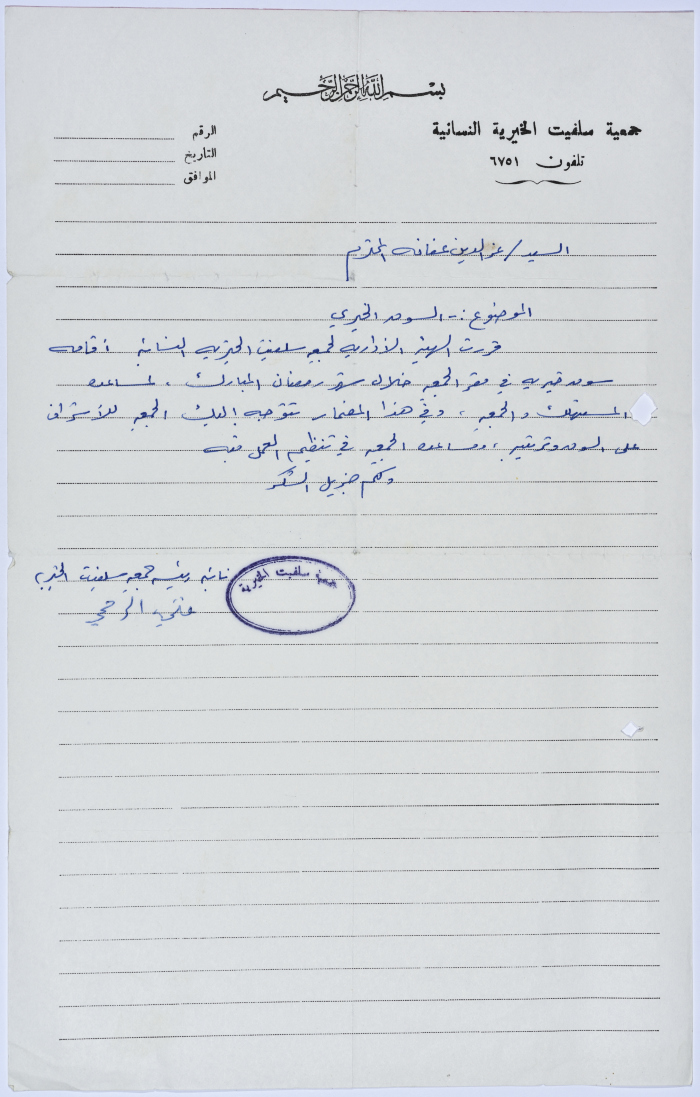 بسم الله الرحمن الرحيم
جمعية سلفيت الخيرية النسائية
تلفون ٦٧٥١
الرقم
التاريخ
الموافق
السيد / عز الدين عفانه المحترم
الموضوع :- السوق الخيري
قررت الهيئة الادارية لجمعية سلفيت الخيرية النسائية اقامة
سوق خيريه في مقر الجمعيه خلال شهر رمضان المبارك ، لمساعده
المستهلك والجمعيه ، وفي هذا المضمار تتوجه اليك الجمعيه للأشراف
على السوق وترتيبه ، ومساعده الجمعيه في تنظيم العمل فيه
ولكم جزيل الشكر
نائبة رئيسه جمعيه سلفيت الخيريه
جمعية سلفيت الخيرية